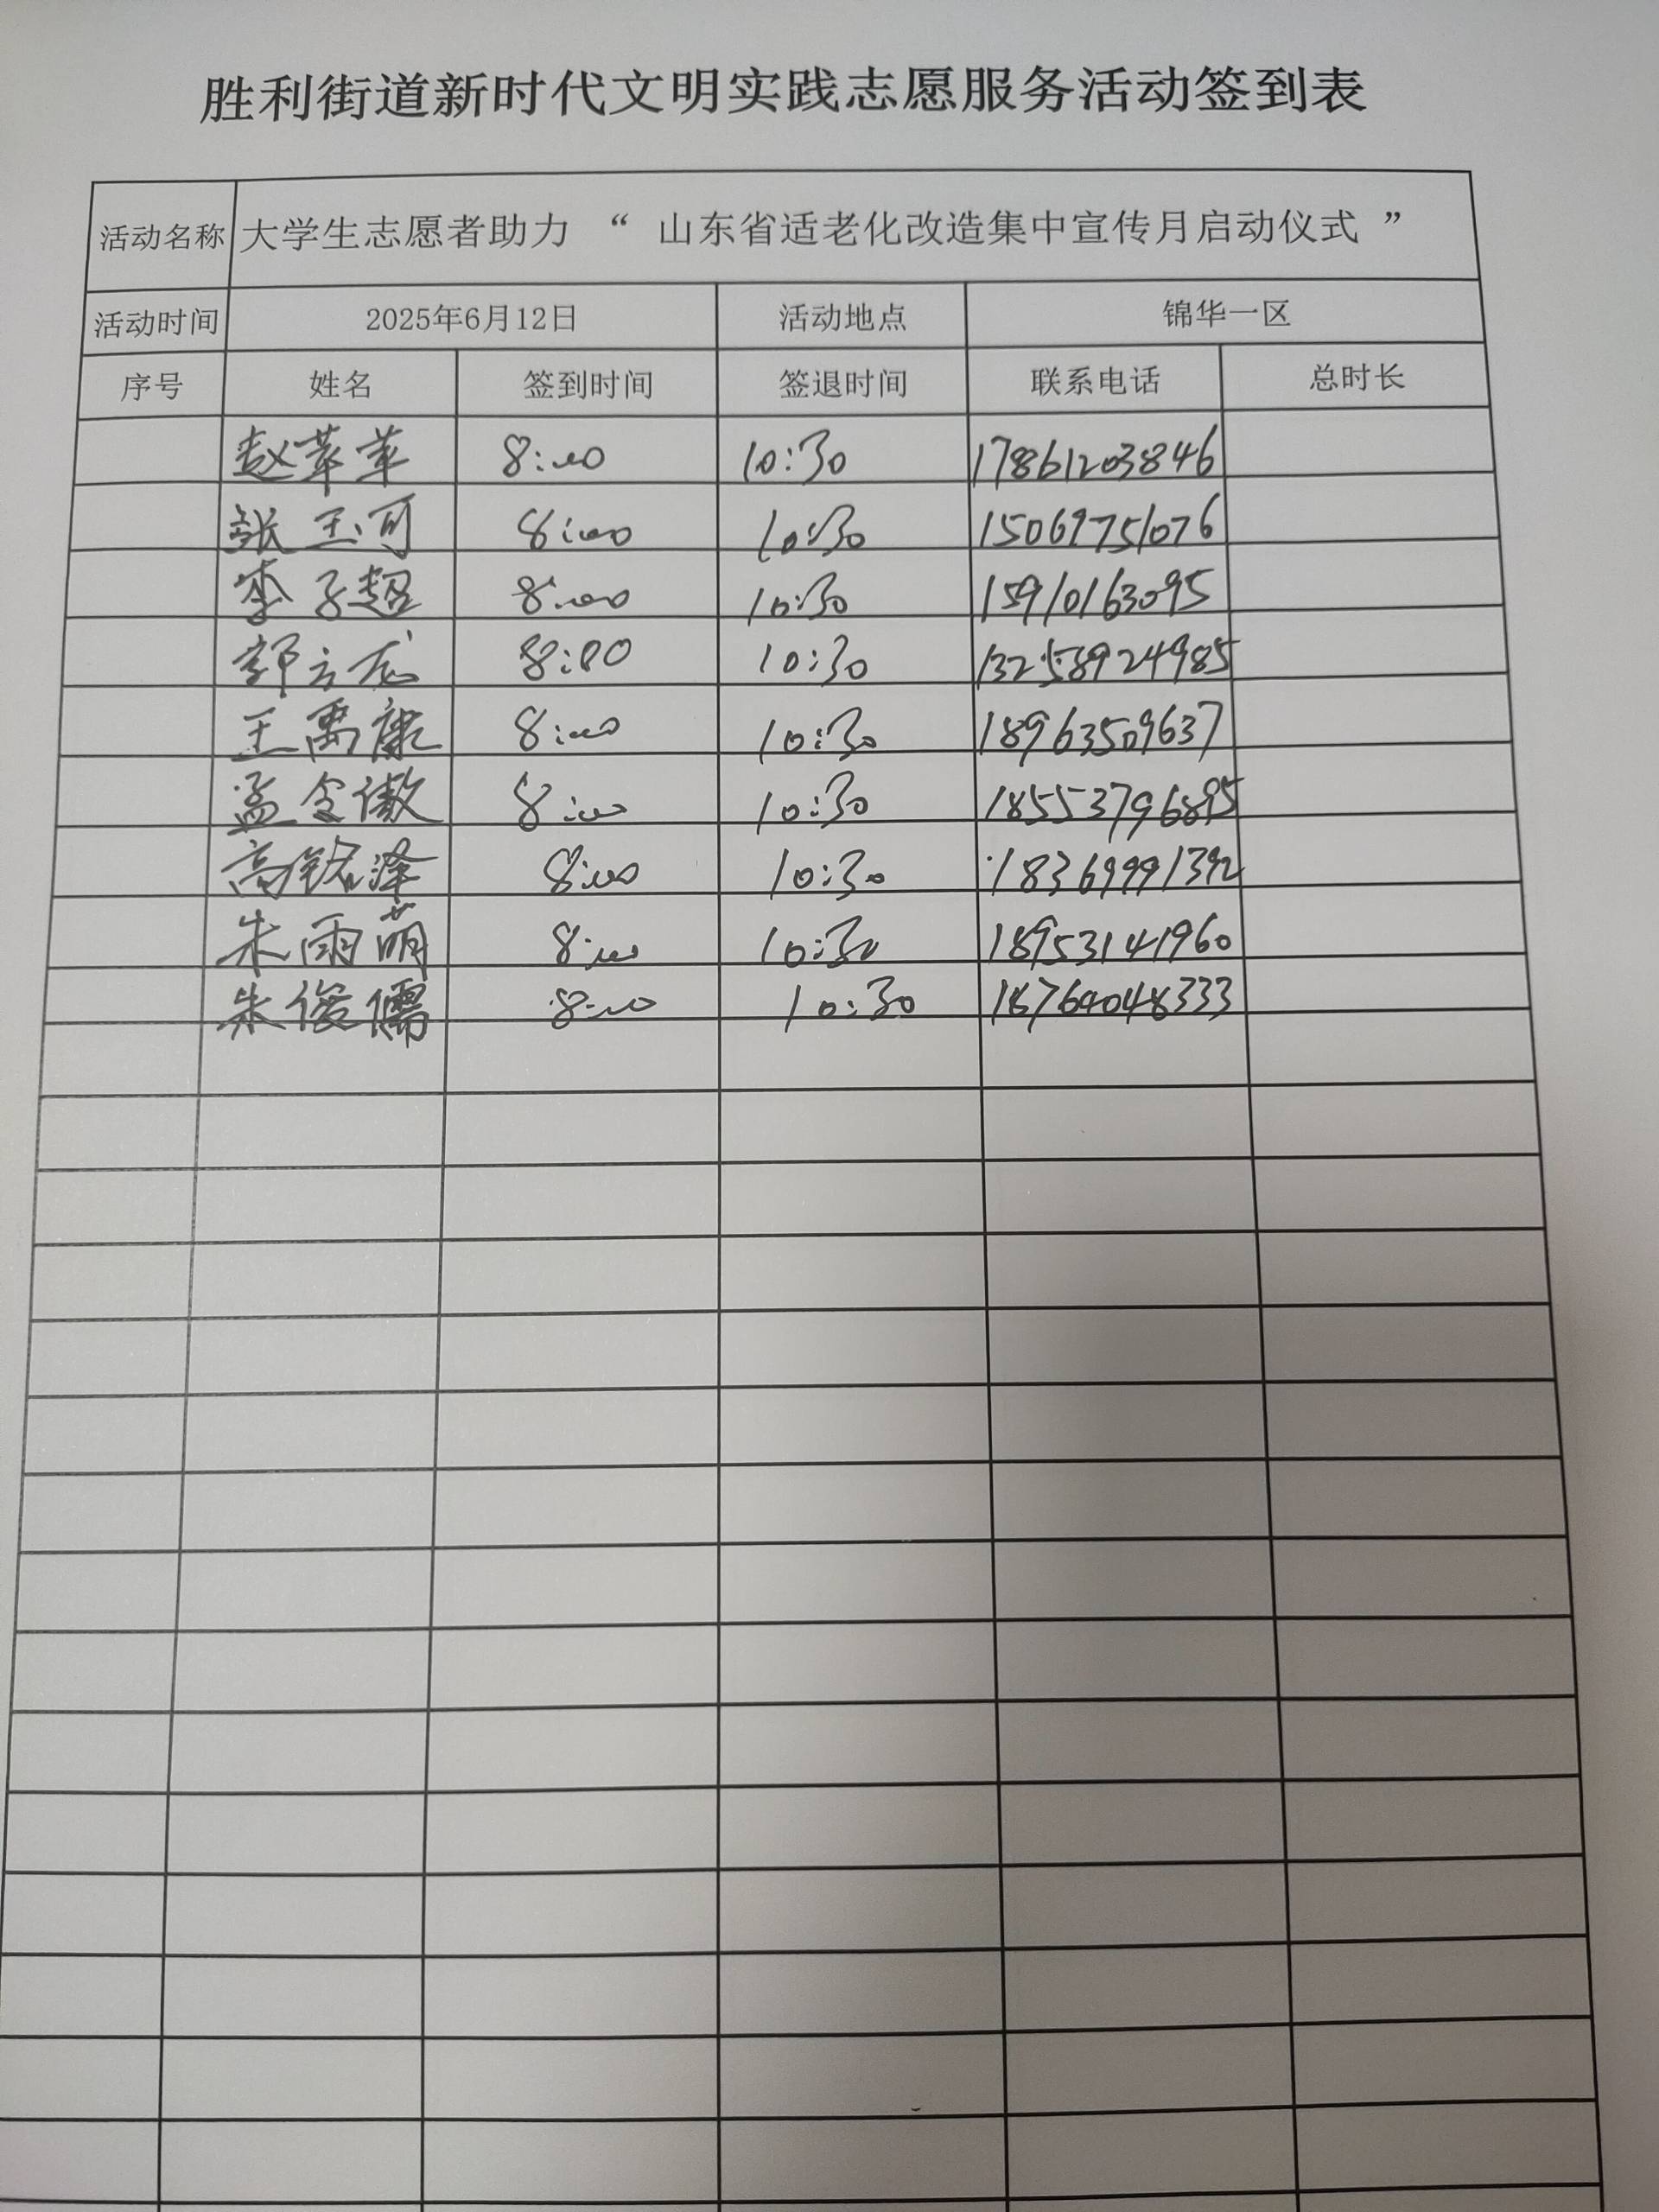 胜利街道新时代文明实践志愿服务活动签到表
活动名称 大学生志愿者助力 “ 山东省适老化改造集中宣传月启动仪式 ”
活动时间 2025年6月12日 活动地点 锦华一区
序号 姓名 签到时间 签退时间 联系电话 总时长
赵苹苹 8:00 10:30 17861203846
张玉可 8:00 10:30 15069751076
李子超 8:00 10:30 15910163095
8:00 10:30 13258924985
王禹康 8:00 10:30 18963509637
孟令傲 8:00 10:30 18553796895
高铭泽 8:00 10:30 18369991392
朱雨萌 8:00 10:30 18953141960
朱俊儒 8:00 10:30 18764048333